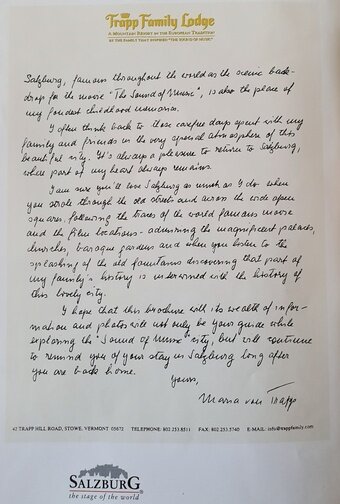 Trapp Family Lodge
A MOUNTAIN RESORT IN THE EUROPEAN TRADITION
BY THE FAMILY THAT INSPIRED "THE SOUND OF MUSIC"
Salzburg, famous throughout the world as the scenic back-
drop for the movie "The Sound of Music", is also the place of
my fondest childhood memories.
I often think back to those carefree days spent with my
family and friends in the very special atmosphere of this
beautiful city. It's always a pleasure to return to Salzburg,
where part of my heart always remains.
I am sure you'll love Salzburg as much as I do when
you stroll through the old streets and across the wide open
squares, following the traces of the world famous movie
and the film locations - admiring the magnificent palaces,
churches, baroque gardens and when you listen to the
splashing of the old fountains discovering that part of
my family's history is interwined with the history of
this lovely city.
I hope that this brochure with its wealth of infor-
mation and photos will not only be your guide while
exploring the "Sound of Music" city, but will continue
to remind you of your stay in Salzburg long after
you are back home.
Yours,
Maria von Trapp
42 TRAPP HILL ROAD, STOWE, VERMONT 05672 TELEPHONE: 802.253.8511 FAX: 802.253.5740 E-MAIL: info@trappfamily.com
SALZBURG®
the stage of the world®